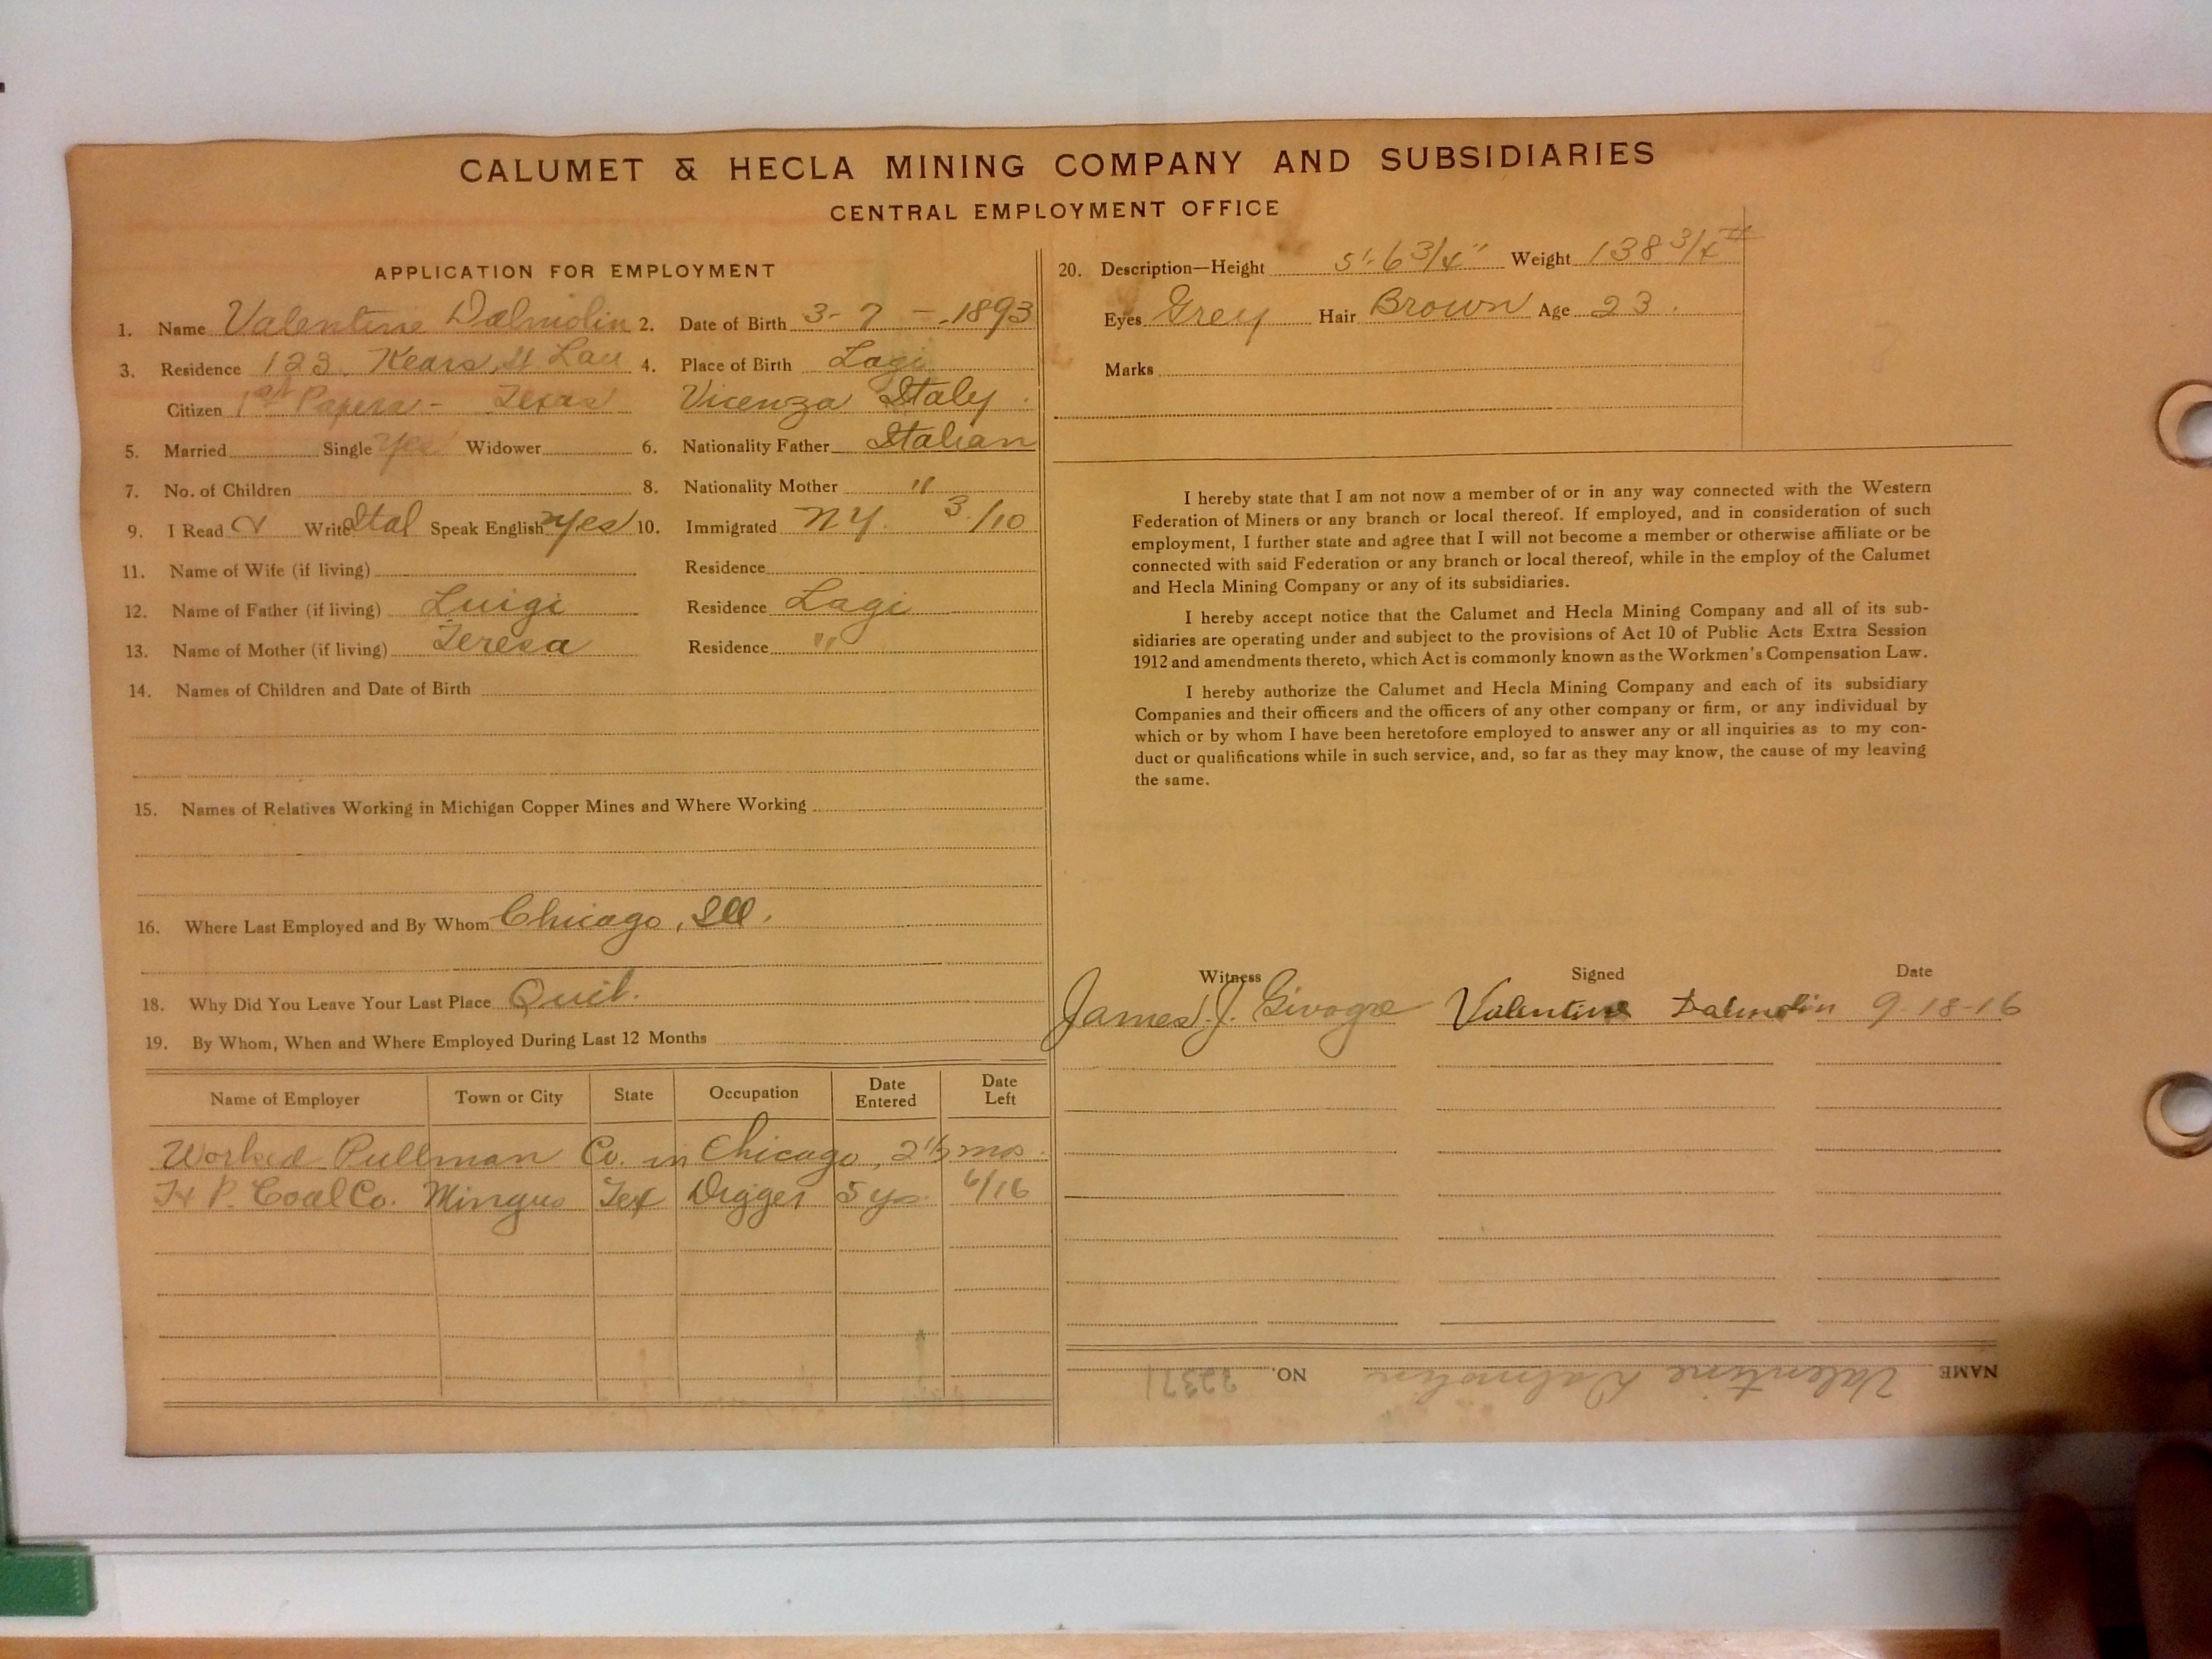 CALUMET & HECLA MINING COMPANY AND SUBSIDIARIES
CENTRAL EMPLOYMENT OFFICE
APPLICATION FOR EMPLOYMENT
1. Name Valentine Dalmolin 2. Date of Birth 3-7-1893
3. Residence 123 Kears. St Lau 4. Place of Birth Lagi
Citizen 1st Papers - Texas Vicenza Italy
5. Married Single Yes Widower 6. Nationality Father Italian
7. No. of Children 8. Nationality Mother "
9. I Read Write Ital Speak English Yes 10. Immigrated N Y. 3/10
11. Name of Wife (if living) Residence
12. Name of Father (if living) Luigi Residence Lagi
13. Name of Mother (if living) Teresa Residence "
14. Names of Children and Date of Birth
15. Names of Relatives Working in Michigan Copper Mines and Where Working
16. Where Last Employed and By Whom Chicago, Ill.
18. Why Did You Leave Your Last Place Quit.
19. By Whom, When and Where Employed During Last 12 Months
Name of Employer Town or City State Occupation Date Entered Date Left
Worked Pullman Co. in Chicago, 2 1/2 mos.
Tx P. Coal Co. Mingus Tex Digger 5 ys. 6/16
20. Description—Height 5'-6 3/4" Weight 138 3/4 #
Eyes Grey Hair Brown Age 23.
Marks
I hereby state that I am not now a member of or in any way connected with the Western
Federation of Miners or any branch or local thereof. If employed, and in consideration of such
employment, I further state and agree that I will not become a member or otherwise affiliate or be
connected with said Federation or any branch or local thereof, while in the employ of the Calumet
and Hecla Mining Company or any of its subsidiaries.
I hereby accept notice that the Calumet and Hecla Mining Company and all of its sub-
sidiaries are operating under and subject to the provisions of Act 10 of Public Acts Extra Session
1912 and amendments thereto, which Act is commonly known as the Workmen's Compensation Law.
I hereby authorize the Calumet and Hecla Mining Company and each of its subsidiary
Companies and their officers and the officers of any other company or firm, or any individual by
which or by whom I have been heretofore employed to answer any or all inquiries as to my con-
duct or qualifications while in such service, and, so far as they may know, the cause of my leaving
the same.
Witness Signed Date
James J. Givogre Valentine Dalmolin 9-18-16
NAME Valentine Dalmolin NO. 32371